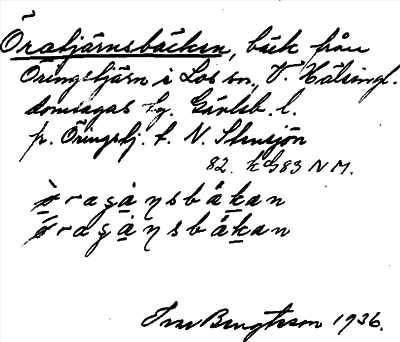 Öratjärnsbäcken, bäck från
Öringstjärn i Los sn, V. Hälsingl.
domsagas tg. Gävleb. l.
p. Öringstj. t. N. Stensjön
82. 83 NM.
öragànsbäkan
öragànsbäkan
Bengtsson 1936.